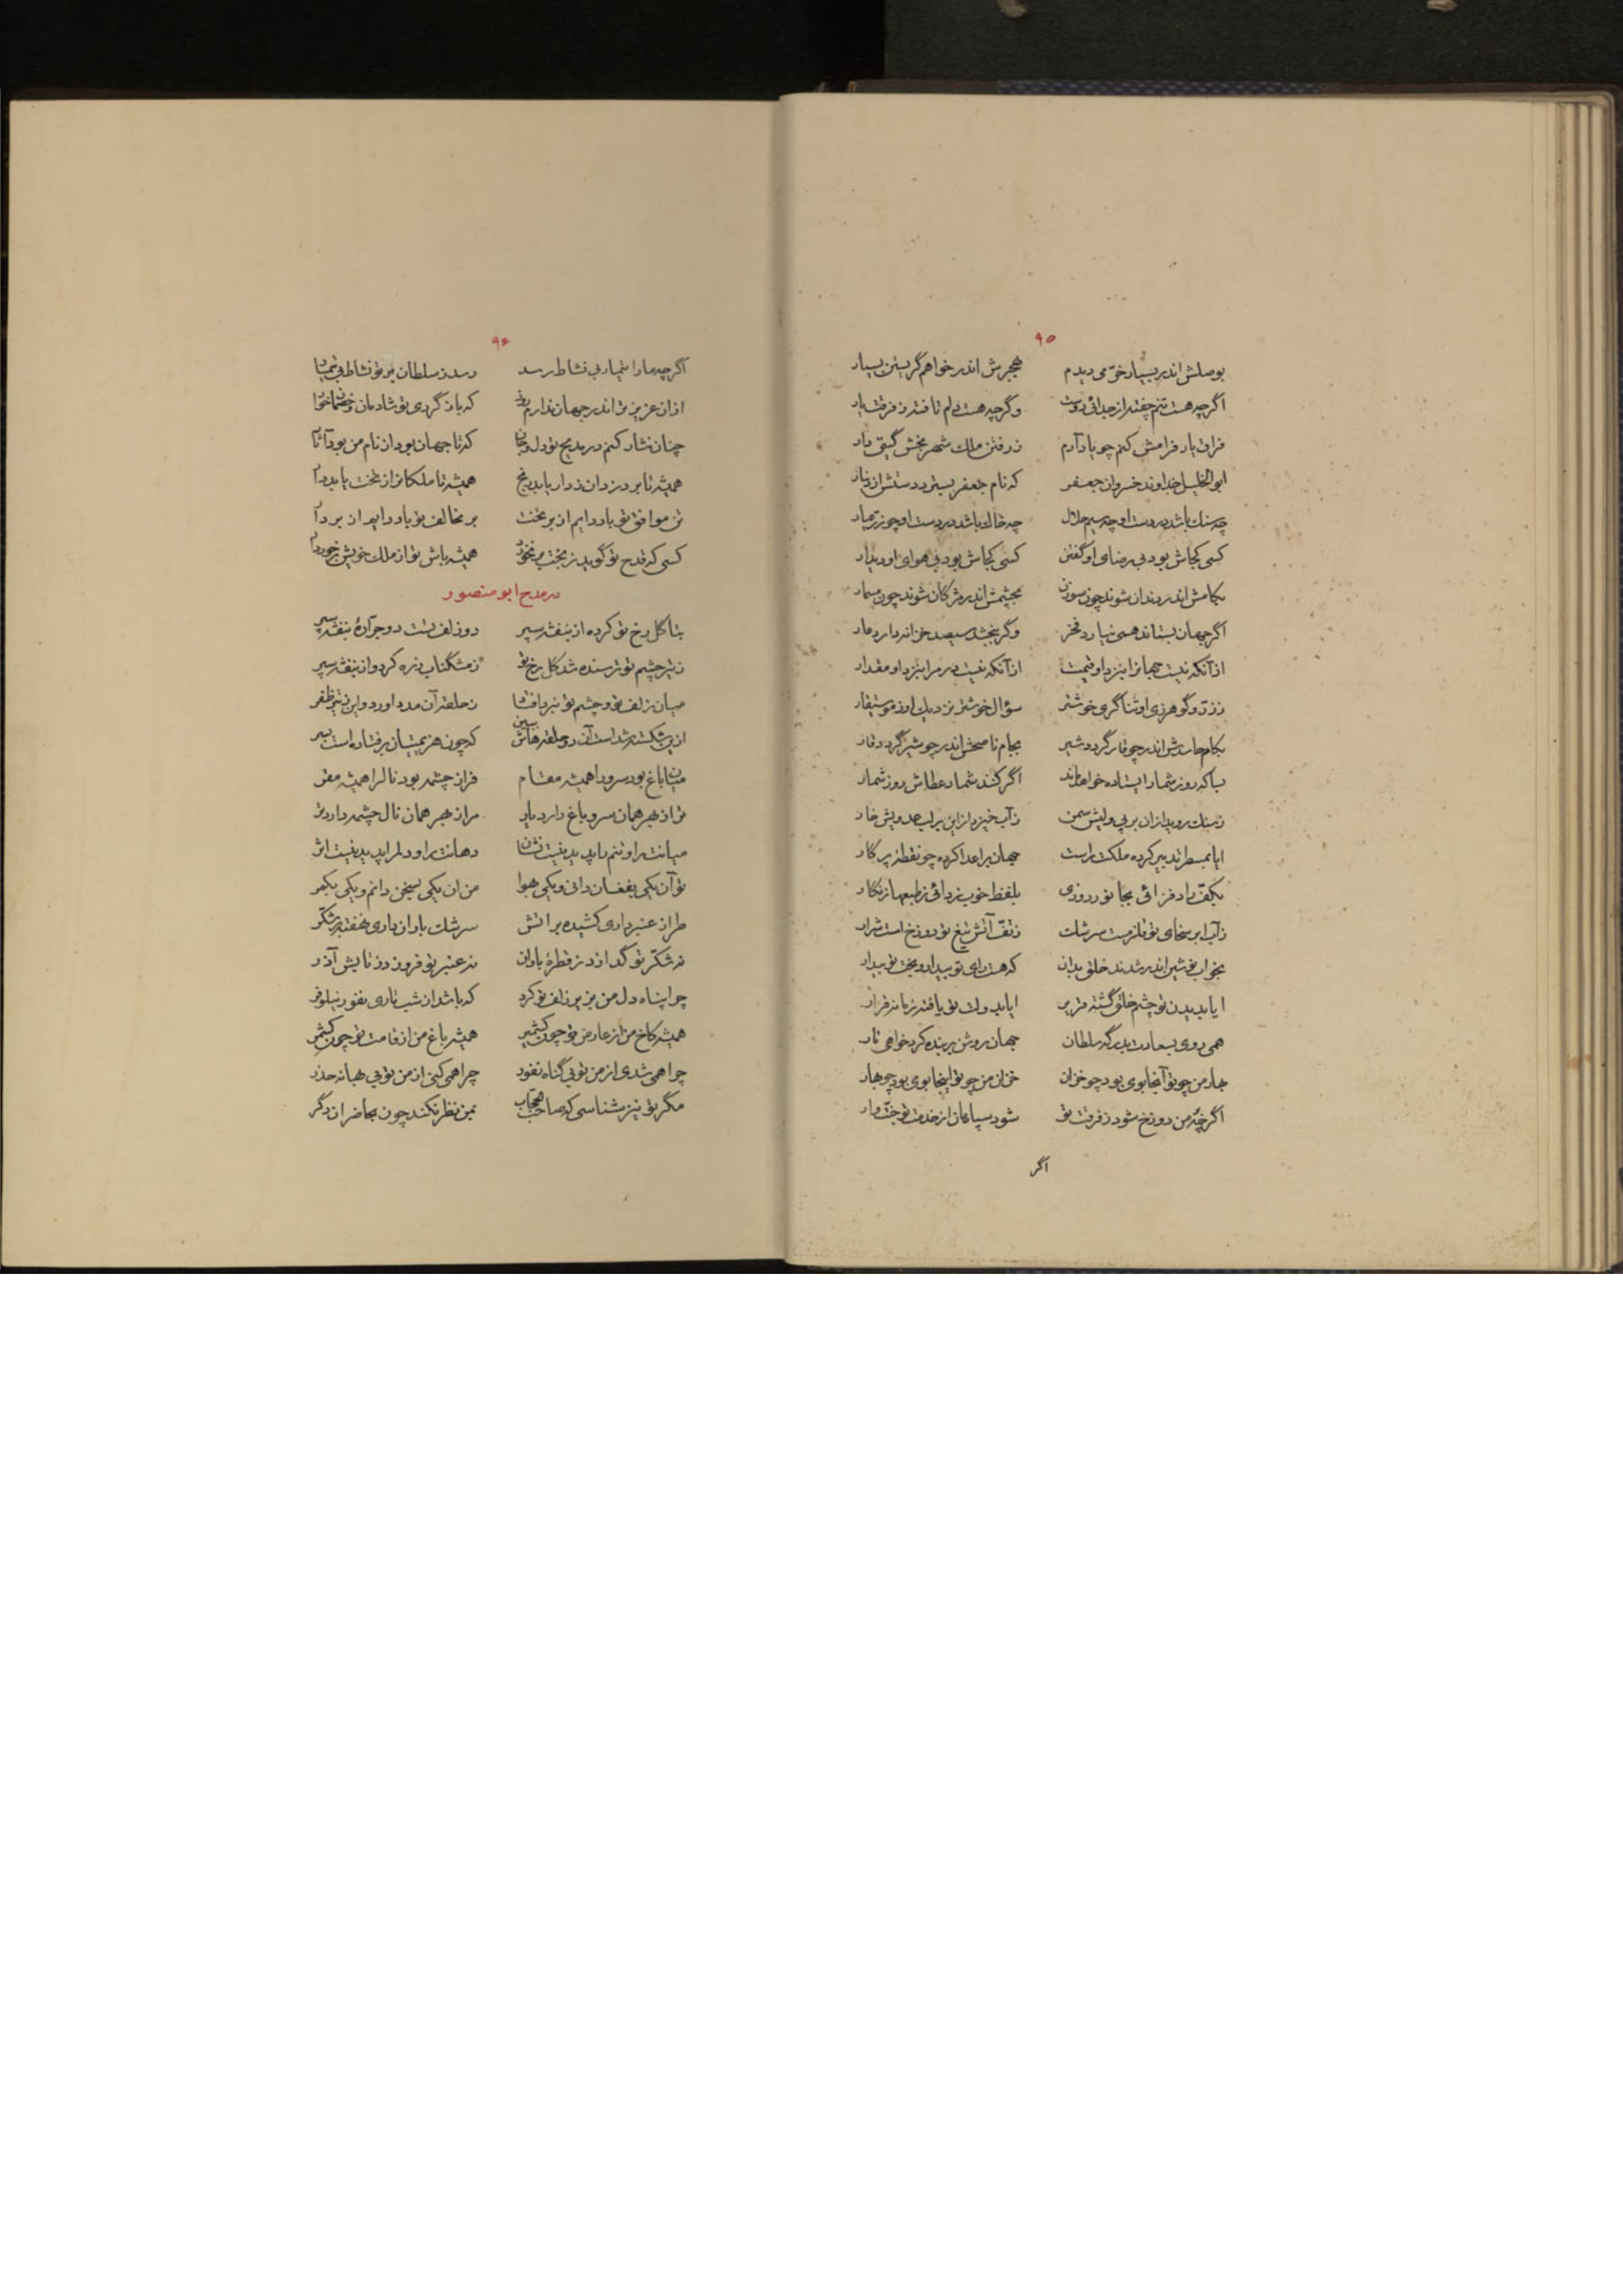 ۹۵
بوصلش اندر بسیار خرّمی دیدم بهجرش اندر خواهم گریستن بسیار
اگرچه هست تنم خفته از جدائی دوست وگرچه هست دلم تافته ز فرقت یار
فراق یار فرامش کنم چو یاد آرم ز رفتن ملک شهر بخش گیتی دار
ابوالخلیل خداوند خسروان جعفر که نام جعفر بسترد دستش از دینار
چه سنک باشد در دست او چه سیم حلال چه خاک باشد در دست او چو زرّ عیار
کسی کجاش بود بی رضای او گفتن کسی کجاش بود بی هوای او دیدار
بکامش اندر دندان شوند چون سوزن بچشمش اندر مژگان شوند چون مسمار
اگر جهان بستاند همی نیارد فخر وگر ببخشد سیصد خزانه دارد عار
از آنکه نیست جهانرا بنزد او قیمت از آنکه نیست درم را بنزد او مقدار
ز زرّ و گوهر زی او ثناگری خوشتر سؤال خوشتر نزدیک او ز موسیقار
بکام حاسدش اندر چو قار گردد شیر بجام ناصحش اندر چو شیر گردد قار
بباکه روز شمار ایستاده خواهد ماند اگر کنند شمار عطاش روز شمار
ز سنک روید از ان بر پی ولیش سمن ز آب خیزد از این بر لب عدویش خار
ایا بمسطر تدبیر کرده ملکت راست جهان بر اعدا کرده چو نقطهٔ پرگار
بکفّ راد فزائی بجا نو روزی بلفظ خوب زدائی ز طبعها زنگار
ز آب ابر سخای تو قلزمست سرشک ز تفّ آتش تیغ تو دوزخ است شرار
بخواب نوشین اندر شدند خلق بدان که هست رای تو بیدار و بخت تو بیدار
ایا بدیدن تو چشم خلق گشته قریر ایا بدولت تو یافته زمانه قرار
همی روی بسعادت بدرگه سلطان جهان روشن بر بنده کرد خواهی تار
بهار من چو تو آنجا بوی بود چو خزان خزان من چو تو اینجا بوی بود چو بهار
اگرچه من دوزخ شود ز فرقت تو شود سپاهان از خدمت تو جنّت وار
اگر
۹۶
اگرچه ما را تیمار بی نشاط رسد رسد ز سلطان بر تو نشاط بی تیمار
از ان عزیزتر اندر جهان ندارم روز که باز گردی تو شادمان و خصمان خوار
چنان نثار کنم در مدیح تو دل و جان که تا جهان بود از نام من بود آثار
همیشه تا بر دزدان ز دار باید رنج همیشه تا ملکانرا ز تخت باید دار
تن موافق تو باد دایم از بر تخت بر مخالف تو باد دایم از بر دار
کسی که مدح تو گوید ز بخت برنخورد همیشه باش تو از ملک خویش برخوردار
در مدح ابو منصور
بتا گل رخ تو کرده از بنفشه سپر دو زلف تست دو جرّارهٔ بنفشه سپر
ز تیر چشم تو ترسنده شد گل رخ تو ز مشگناب زره کرد و از بنفشه سپر
میان زلف تو و چشم تو نبرد افتاد ز حلقه آن مدد اورد و این ز تیر ظفر
از پی شکسته شد است آن دو حلقه هاش ببین که چون هزیمتیان برفتاده است بسر
میان باغ بود سرو را همیشه مقام فراز چشمه بود نال را همیشه مقر
تو از بهر همان سرو باغ دارد یار مرا از بهر همان نال چشمه دارد تر
میانت را و تنم را پدید نیست نشان دهانت را و دلم را پدید نیست اثر
تو آن یکی بفغان دانی و یکی بهوا من ان یکی بسخن دانم و یکی بکمر
طراز عنبر داری کشیده بر اتش سرشک باران داری نهفته در شکّر
نه شکّر تو گدازد ز قطرهٔ باران نه عنبر تو فروزد ز تابش آذر
چرا پناه دل من بزیر زلف تو کرد که باشد از شب تاری نفور نیلوفر
همیشه کاخ من از عارض تو چون کشمیر همیشه باغ من از قامت تو چون کشمر
چرا همی شدی از من تو بی گناه نفور چرا همی کنی از من تو بی بهانه حذر
مگر تو نیز شناسی که صاحب حجّاب بمن نظر نکند چون بحاضران دگر